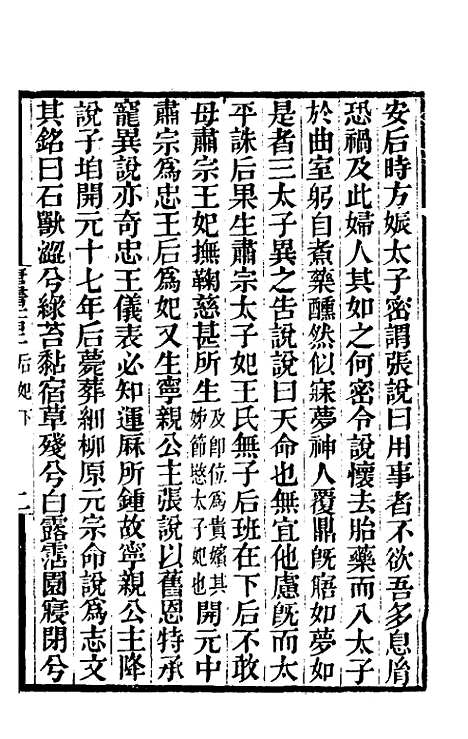 安后時方娠太子密謂張說曰用事者不欲吾多息胤
恐禍及此婦人其如之何密令說懷去胎藥而入太子
於曲室躬自煮藥醺然似寐夢神人覆鼎旣寤如夢如
是者三太子異之告說說曰天命也無宜他慮旣而太
平誅后果生肅宗太子妃王氏無子后班在下后不敢
母肅宗王妃撫鞠慈甚所生及卽位為貴嬪其姊節愍太子妃也開元中
肅宗為忠王后為妃又生寧親公主張說以舊恩特承
寵異說亦奇忠王儀表必知運厤所鍾故寧親公主降
說子垍開元十七年后薨葬細柳原元宗命說為志文
其銘曰石獸澀兮綠苔黏宿草殘兮白露霑園寢閉兮
后妃下
二